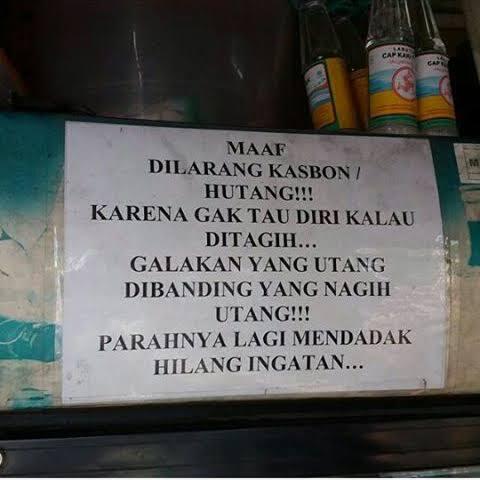 LARU
CAP KAKI
MAAF
DILARANG KASBON /
HUTANG!!!
KARENA GAK TAU DIRI KALAU
DITAGIH...
GALAKAN YANG UTANG
DIBANDING YANG NAGIH
UTANG!!!
PARAHNYA LAGI MENDADAK
HILANG INGATAN...